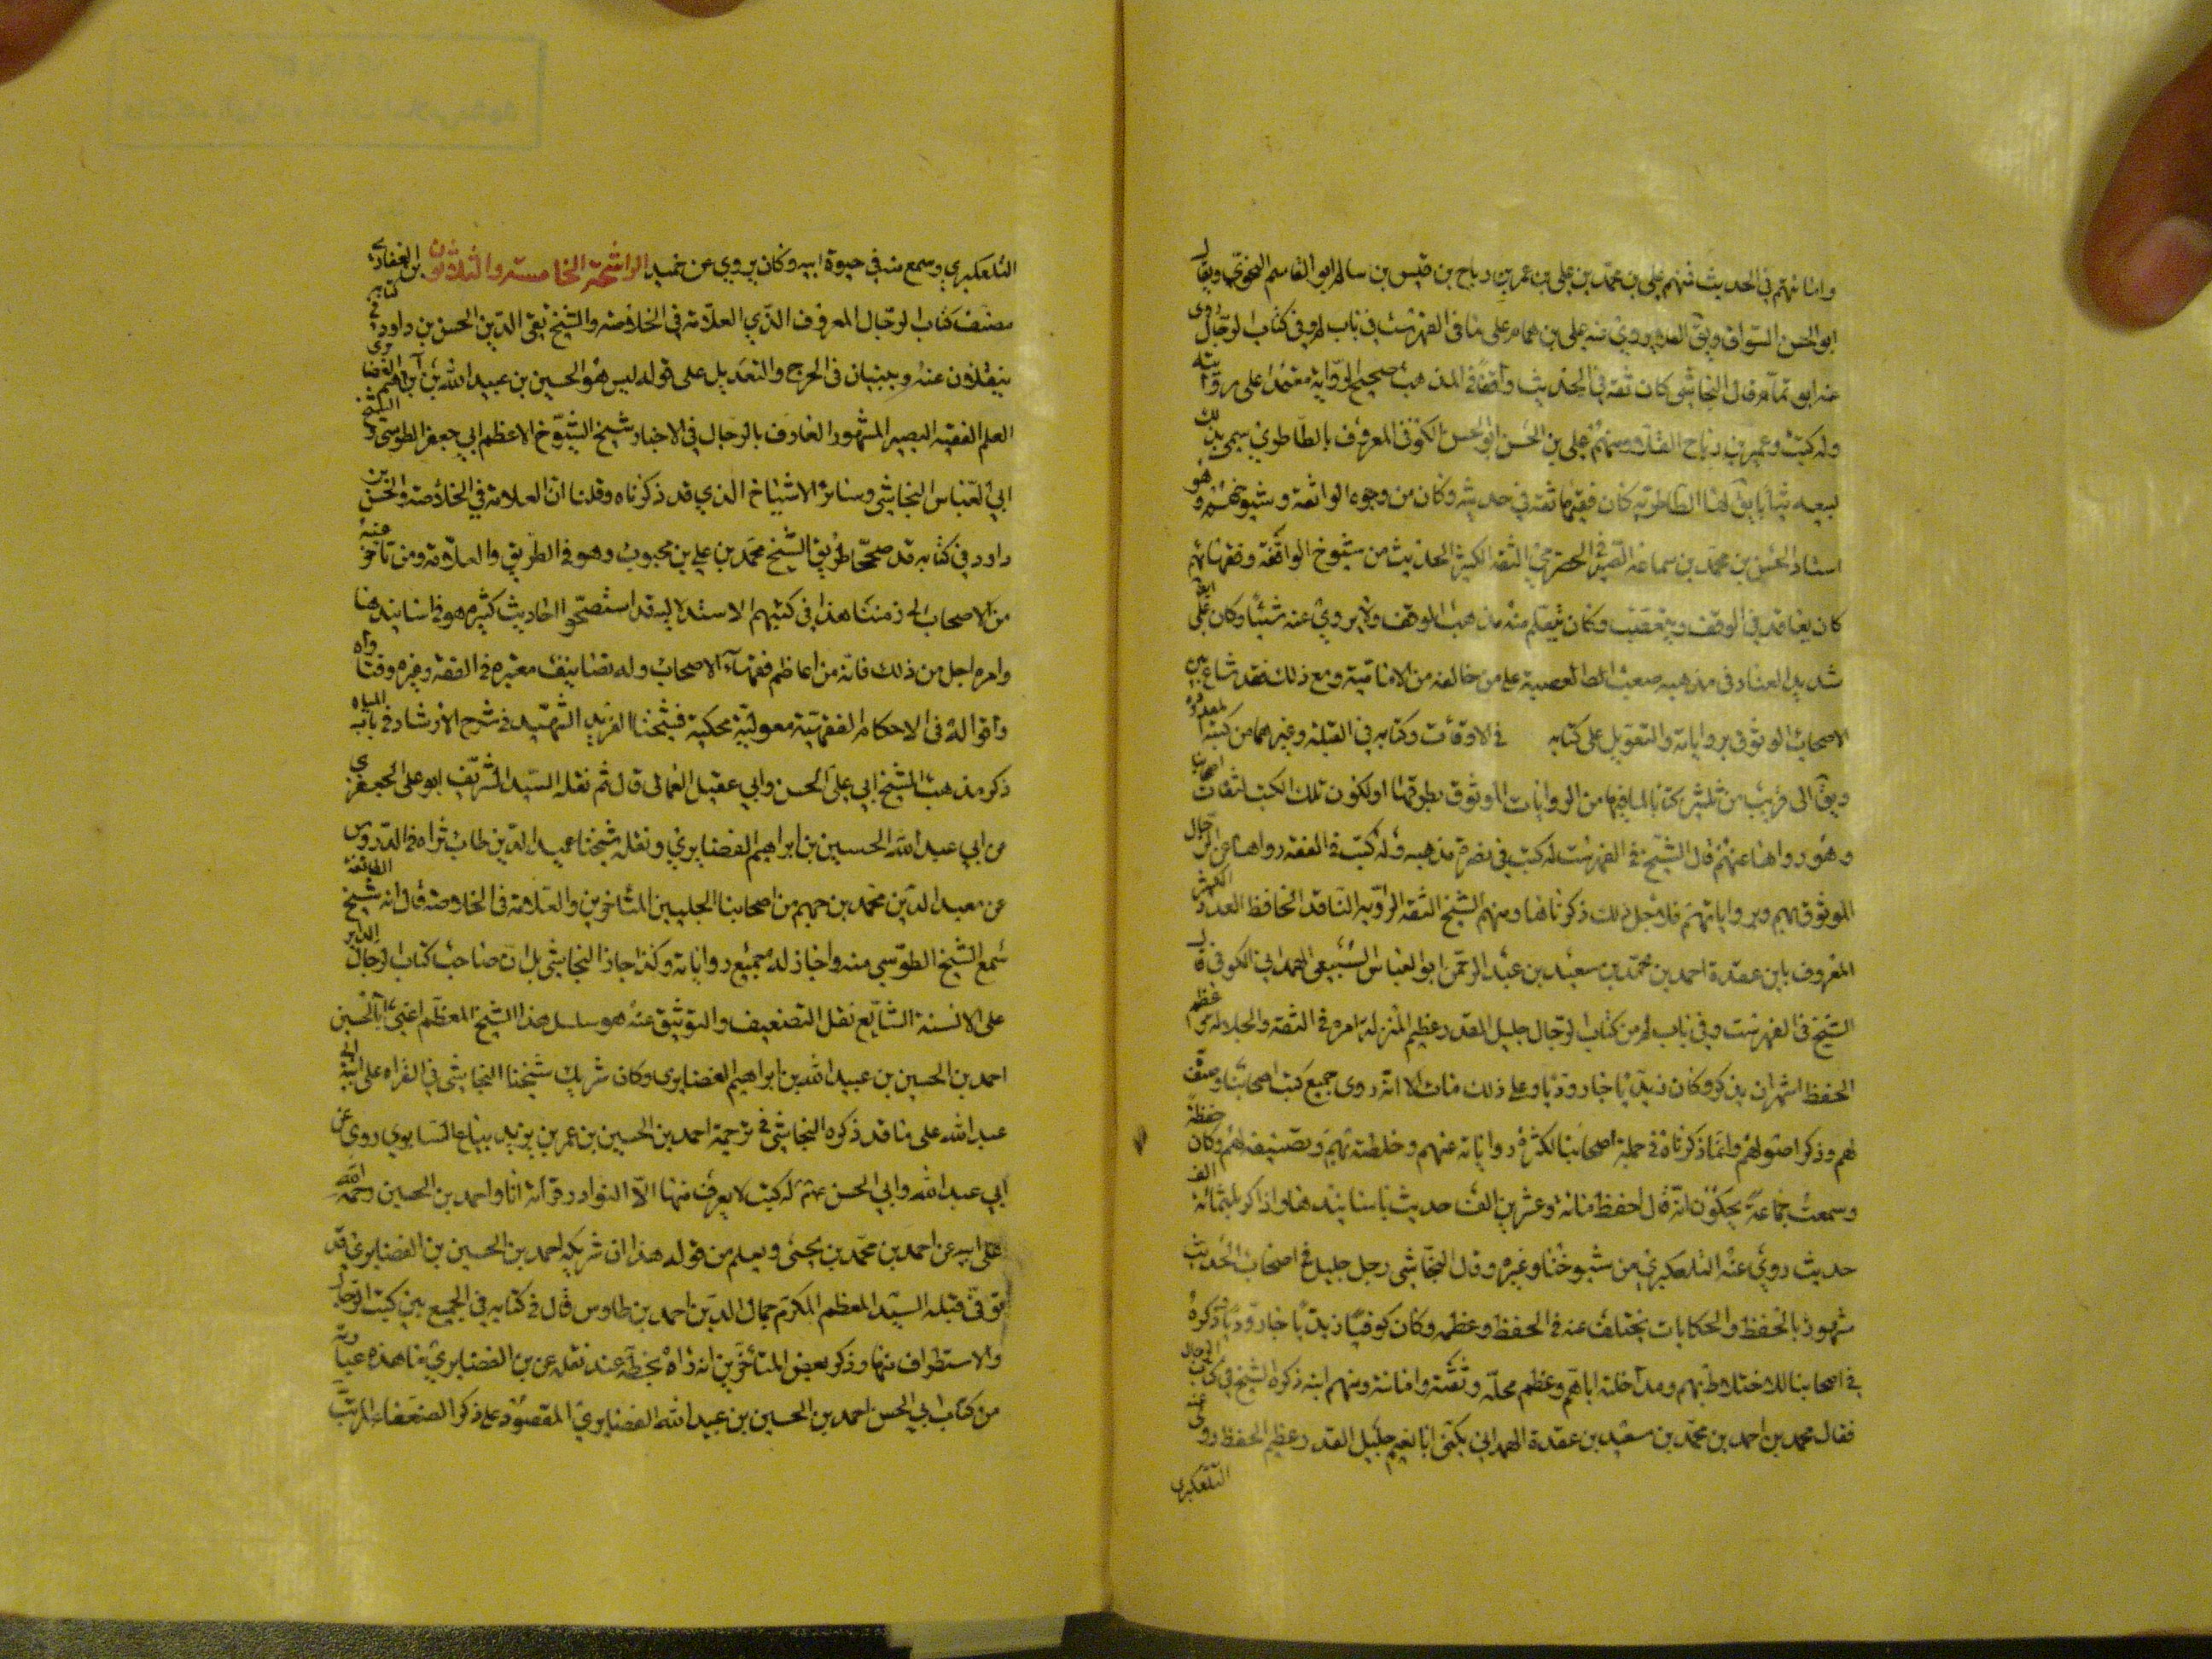 وامانتهم في الحديث فمنهم علي بن محمد بن علي بن عمر بن رباح بن قيس بن سالم ابو القاسم النحوي ويقال
ابو الحسن السواق ويق القلا روى عنه علي بن همام على ما في الفهرست في باب لم وفي كتاب الرجال روى
عنه ابو همام قال النجاشي كان ثقة في الحديث واقفا في المذهب صحيح الرواية معتمدا على روايته
وله كتب وعمر بن رباح القلا ومنهم علي بن الحسن ابو الحسن الكوفي المعروف بالطاطري سمي بذلك
لبيعه ثيابا يق لها الطاطرية كان فقيها ثقة في حديثه وكان من وجوه الواقفة وشيوخهم وهو
استاد الحسن بن محمد بن سماعة الصيرفي الحضرمي الثقة الكثير الحديث من شيوخ الواقفة وفقهائهم
كان يعاند في الوقف ويتعصب وكان تعلم منه مذهب الوقف ولا يروي عنه شيئا وكان علي ايضا
شديد العناد في مذهبه صعب العصبية على من خالفه من الامامية ومع ذلك فقد شاع بين
الاصحاب الوثوق برواياته والتعويل على كتابه في الاوقات وكتابه في القبلة وغيرهما من كتبه المعدودة
ويق الى قريب من ثلثين كتابا لما فيها من الروايات الموثوق بطرقها او لكون تلك الكتب لثقات اصحابنا
وهو رواها عنهم قال الشيخ في الفهرست له كتب في نصرة مذهبه وله كتب في الفقه رواها عن الرجال
الموثوق بهم وبرواياتهم فلاجل ذلك ذكرناها ومنهم الشيخ الثقة الراوية الناقد الحافظ العدد الكثير
المعروف بابن عقدة احمد بن محمد بن سعيد بن عبد الرحمن ابو العباس السبيعي الهمداني الكوفي قال
الشيخ في الفهرست وفي باب لم من كتاب الرجال جليل القدر عظيم المنزلة امره في الثقة والجلالة وعظم
الحفظ اشهر ان يذكر وكان زيديا جاروديا وعلى ذلك مات الا انه روى جميع كتب اصحابنا وصنف
لهم وذكر اصولهم وانما ذكرناه في جملة اصحابنا لكثرة رواياته عنهم وخلطته بهم وتصنيفه لهم وكان حفظة
وسمعت جماعة يحكون انه قال احفظ مائة وعشرين الف حديث باسانيدها واذاكر بثلثمائة الف
حديث روى عنه التلعكبري من شيوخنا وغيره وقال النجاشي رجل جليل في اصحاب الحديث
مشهور بالحفظ والحكايات يختلف عنه في الحفظ وعظمه وكان كوفيا زيديا جاروديا ذكره
في اصحابنا لاختلاطه بهم ومداخلته اياهم وعظم محله وثقته وامانته ومنهم ابنه ذكره الشيخ في كتاب الرجال
فقال محمد بن احمد بن محمد بن سعيد بن عقدة الهمداني يكنى ابا نعيم جليل القدر عظيم الحفظ روى عنه
التلعكبري
التلعكبري وسمع منه في حيوة ابيه وكان يروي عن حميد الراشحة الخامسة والثلاثون ابن الغضائري
مصنف كتاب الرجال المعروف الذي العلامة في الخلاصة والشيخ تقي الدين الحسن بن داود في كتابه
ينقلان عنه ويبنيان في الجرح والتعديل على قوله ليس هو الحسين بن عبيد الله بن ابراهيم الغضائري
العلم الفقيه البصير المشهور العارف بالرجال في الاخبار شيخ الشيوخ الاعظم ابي جعفر الطوسي والشيخ
ابي العباس النجاشي وسائر الاشياخ الذي قد ذكرناه وقلنا ان العلامة في الخلاصة والحسن بن
داود في كتابه قد صححا طريق الشيخ محمد بن علي بن محبوب وهو في الطريق والعلامة ومن تاخر عنه
من الاصحاب الى زمننا هذا في كتبهم الاستدلالية قد استصحوا احاديث كثيرة هو في اسانيدها
وامره اجل من ذلك فانه من اعاظم فقهاء الاصحاب وله تصانيف معتبرة في الفقه وغيره وفتاواه
واقواله في الاحكام الفقهية معولية محكية فشيخنا الفريد الشهيد في شرح الارشاد في باب المياه
ذكر مذهب الشيخ ابي علي الحسن وابي عقيل العماني قال ثم نقله السيد الشريف ابو علي الجعفري
عن ابي عبد الله الحسين بن ابراهيم الغضايري ونقله شيخنا عميد الدين طاب ثراه في الدروس
عن معيد الدين محمد بن جهيم من اصحابنا الجليين المتاخرين والعلامة في الخلاصة قال انه شيخ الطائفة
سمع الشيخ الطوسي منه واجاز له جميع رواياته وكذا اجاز النجاشي بل ان صاحب كتاب الرجال الداير
على الالسنة الشايع نقل التضعيف والتوثيق عنه هو سليل هذا الشيخ المعظم اعني ابا الحسين
احمد بن الحسين بن عبيد الله بن ابراهيم الغضايري وكان شريك شيخنا النجاشي في القراءة على ابيه ابي
عبد الله على ما قد ذكره النجاشي في ترجمة احمد بن الحسين بن عمر بن يزيد بياع السابري روى عن
ابي عبد الله وابي الحسن ع له كتب لا يعرف منها الا النوادر قراته انا واحمد بن الحسين رحمه الله
على ابيه عن احمد بن محمد بن يحيى ويعلم من قوله هذا ان شريكه احمد بن الحسين بن الغضايري قد
توفي قبله السيد المعظم المكرم جمال الدين احمد بن طاوس قال في كتابه في الجمع بين كتب الرجال
والاستطراف منها وذكر بعض المتاخرين انه راه بخطه عند نقله عن بن الغضايري ما هذه عبارته
من كتاب ابي الحسن احمد بن الحسين بن عبيد الله الغضايري المقصور على ذكر الضعفاء المرتب